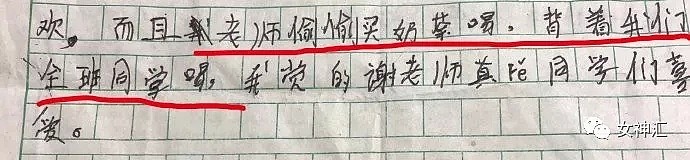 欢。而且我老师偷偷买奶茶喝，背着我们
全班同学喝，我觉的谢老师真陪同学们喜
爱。
女神汇